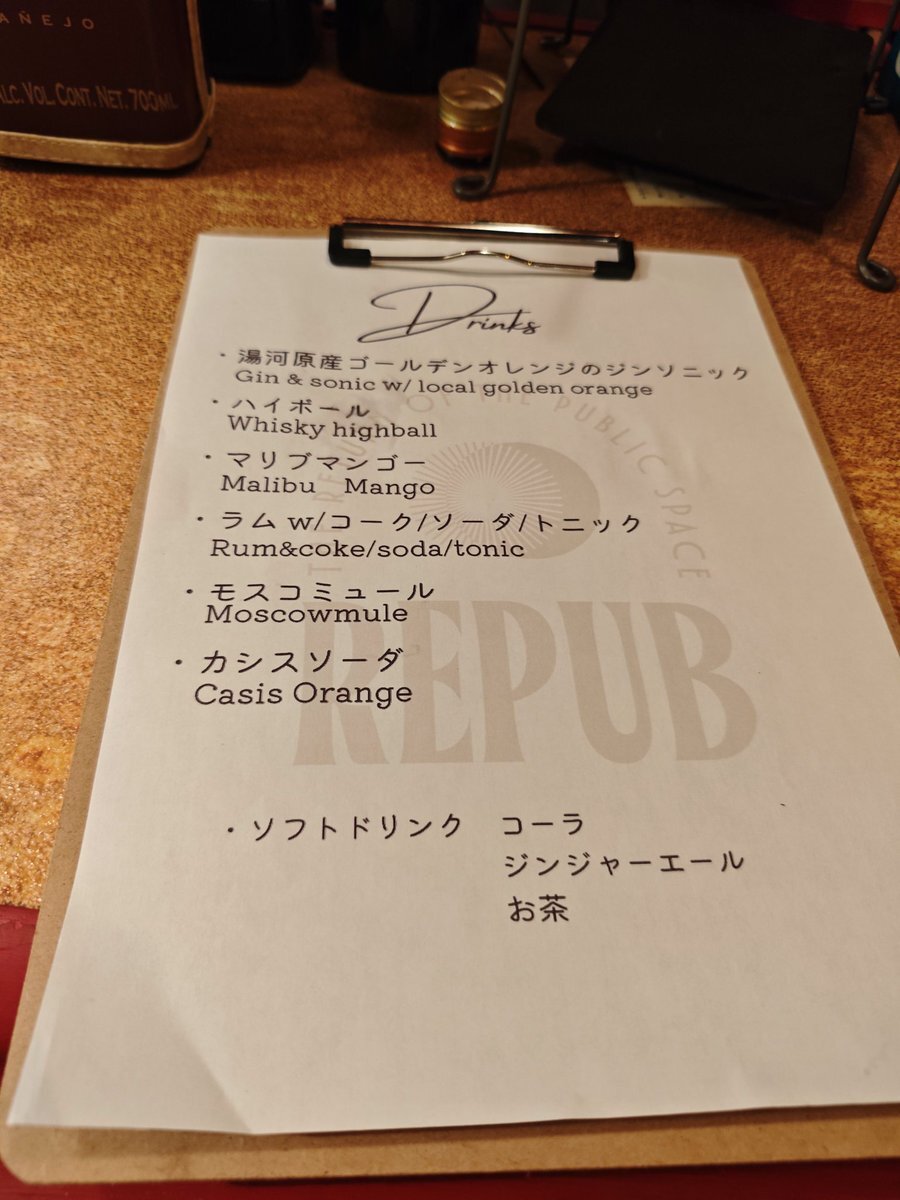 AÑEJO
ALC. VOL. CONT. NET. 700ML
Drinks
・湯河原産ゴールデンオレンジのジンソニック
Gin & sonic w/ local golden orange
・ハイボール
Whisky highball
・マリブマンゴー
Malibu Mango
・ラム w/コーク/ソーダ/トニック
Rum&coke/soda/tonic
・モスコミュール
Moscowmule
・カシスソーダ
Casis Orange
OF THE PUBLIC SPACE
REPUB
・ソフトドリンク コーラ
ジンジャーエール
お茶